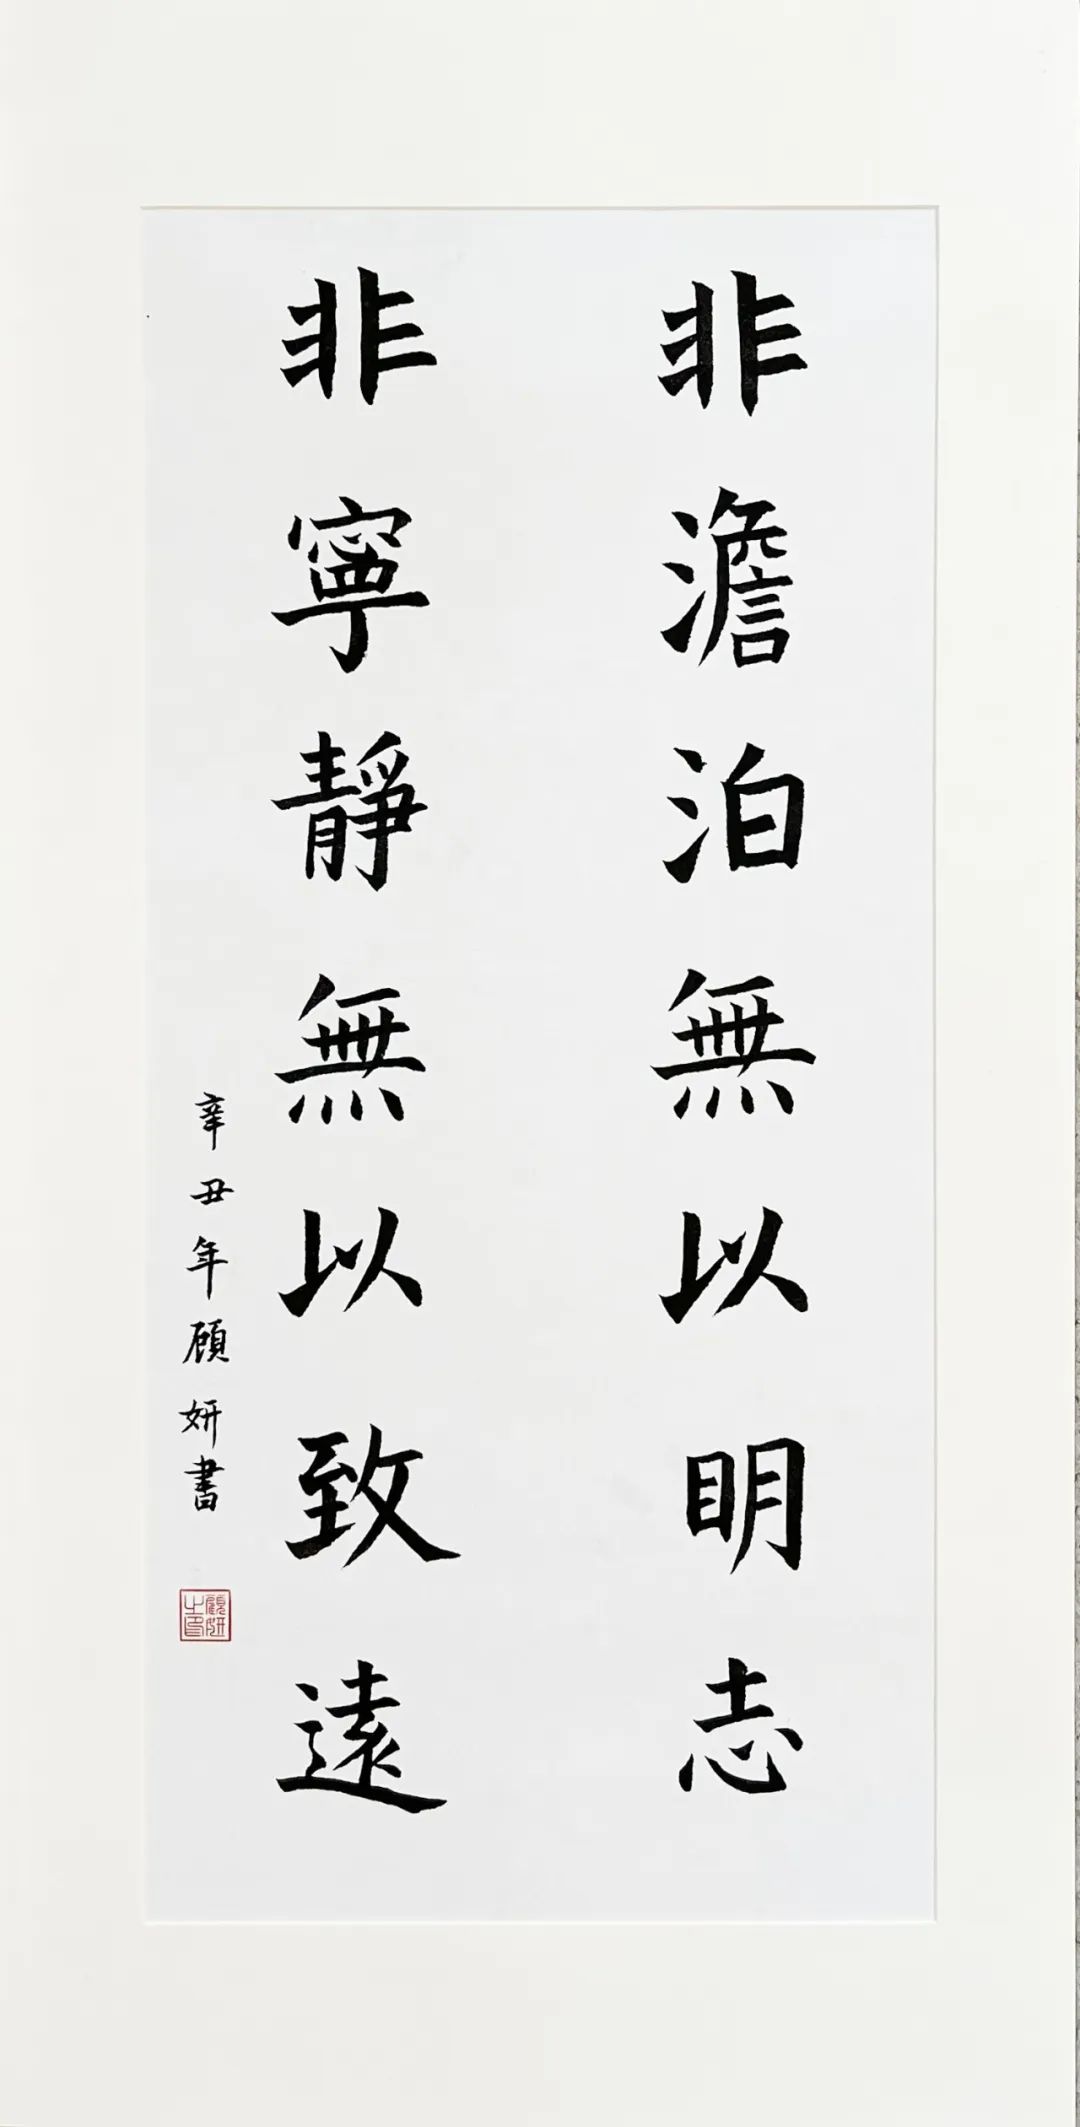 非澹泊無以明志
非寧靜無以致遠
辛丑年顾妍書
顧妍之印